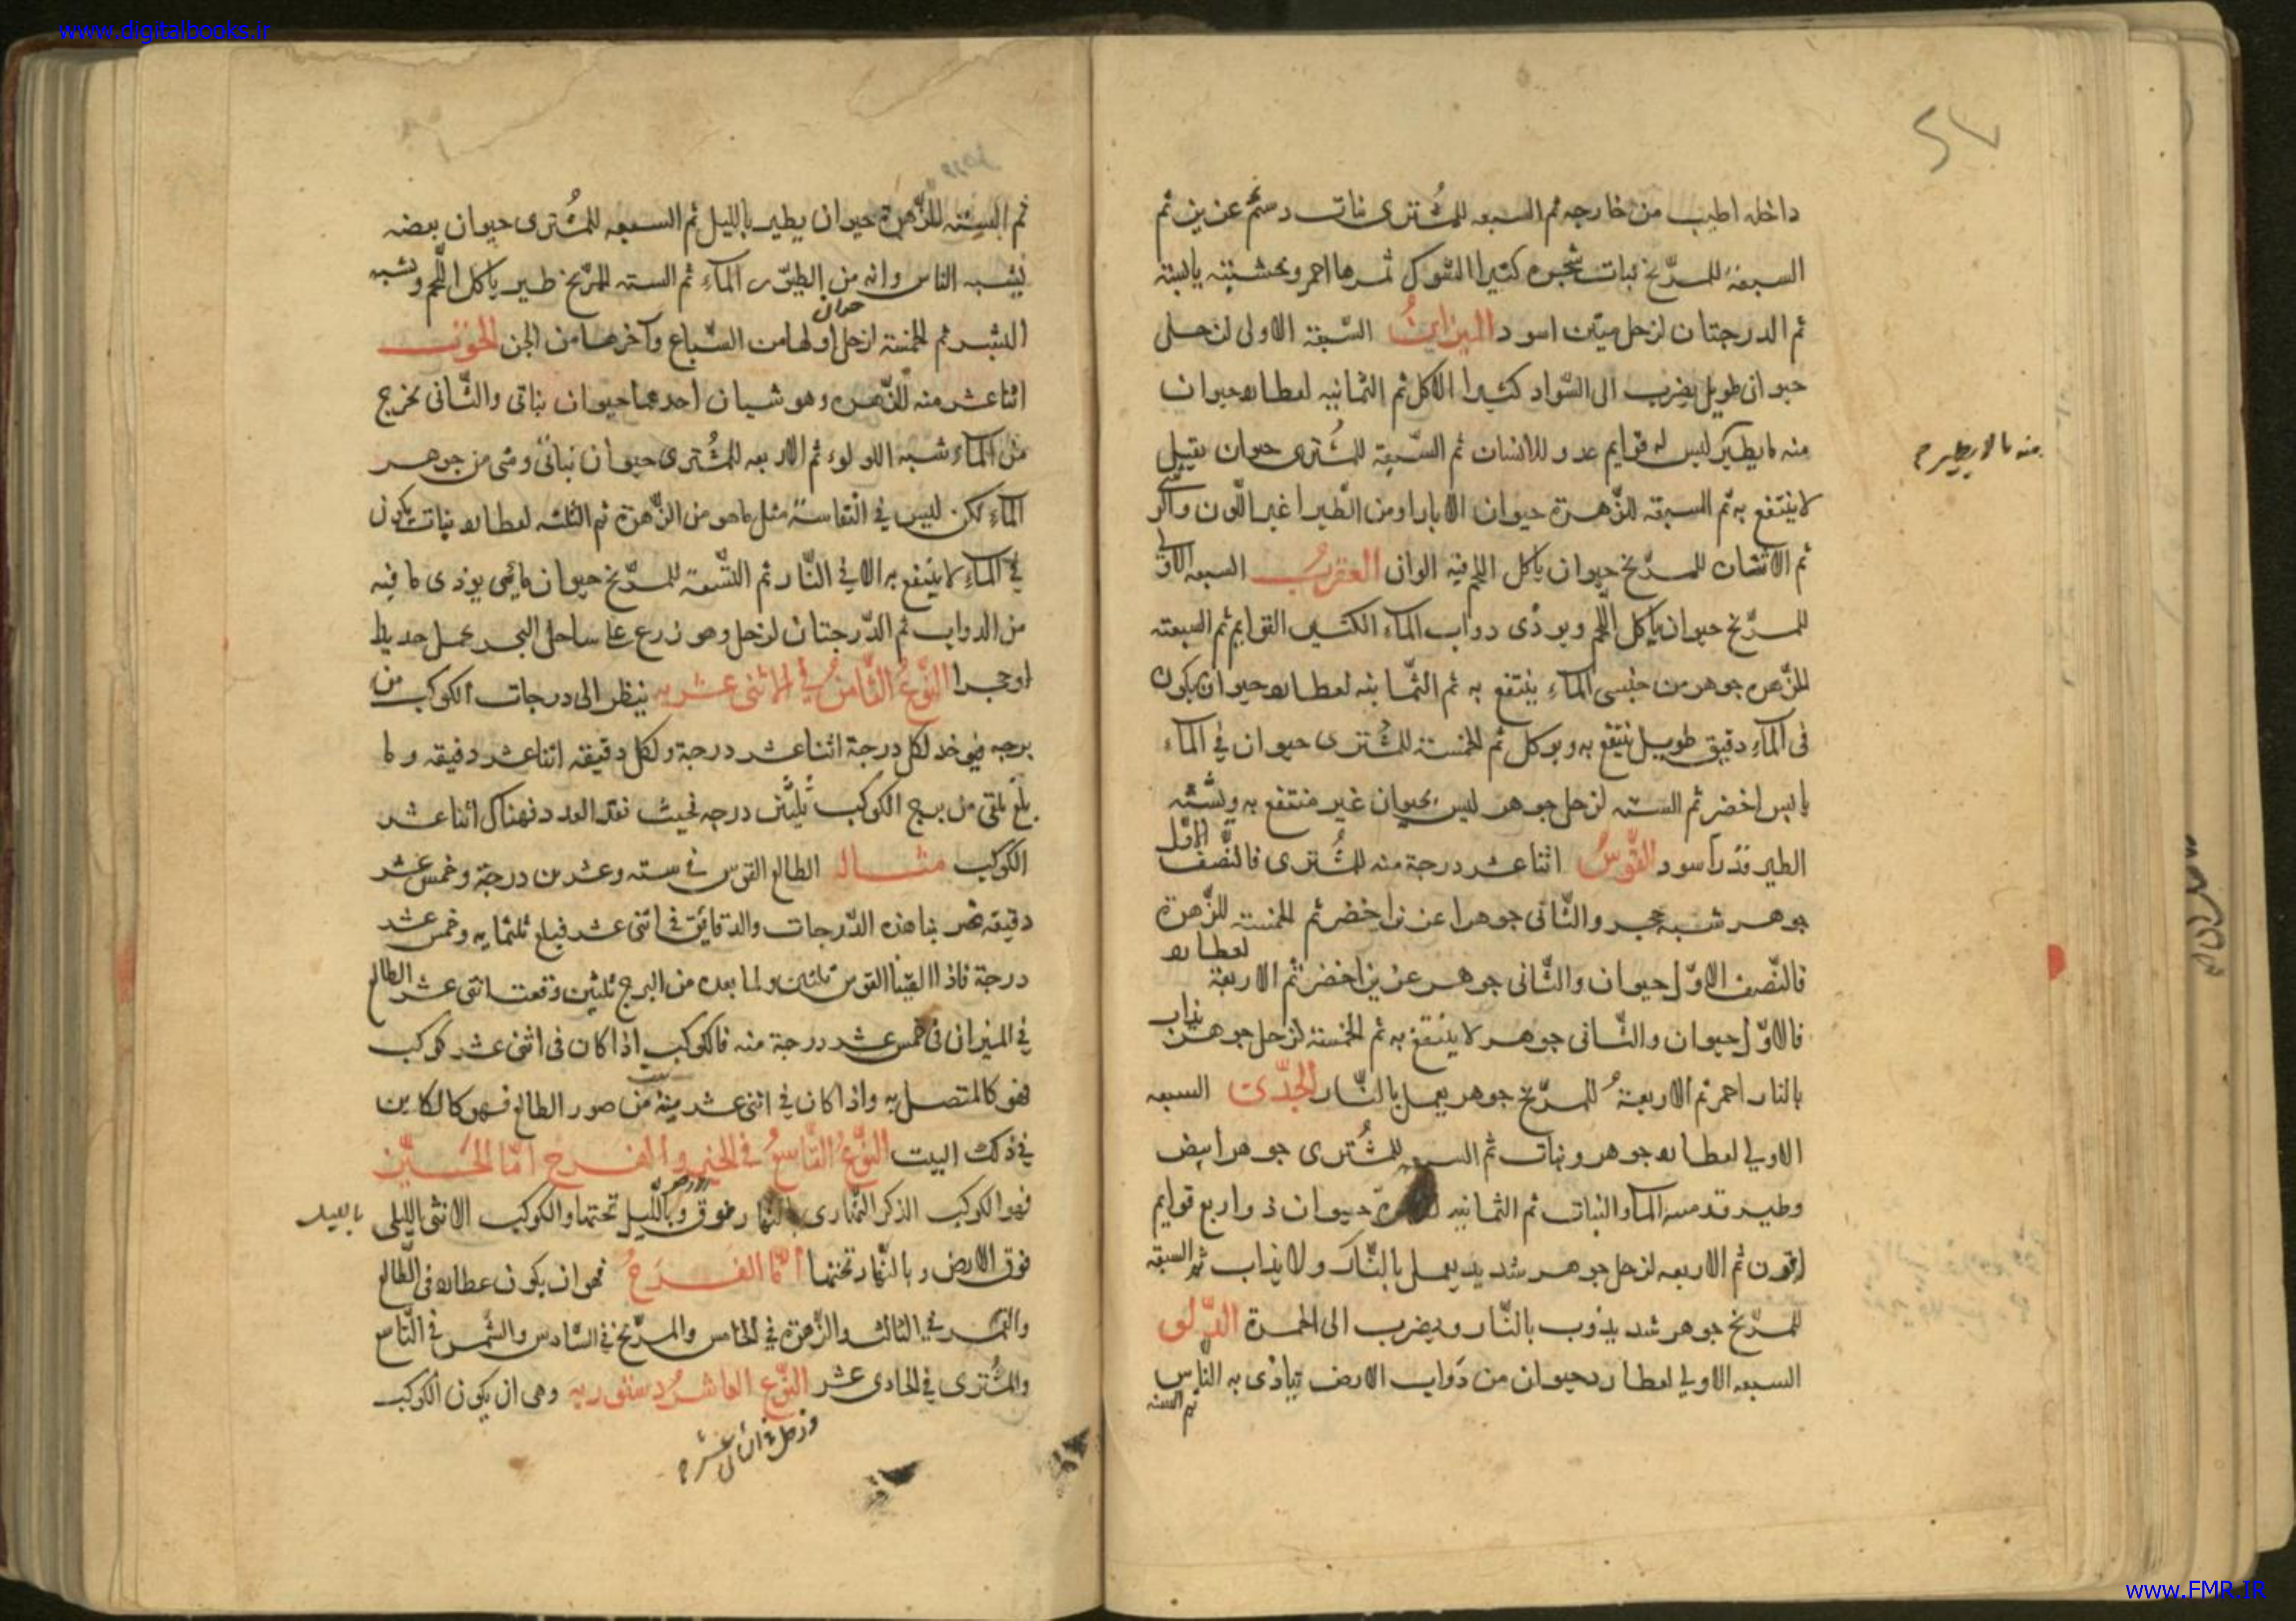 www.digitalbooks.ir
داخله اطيب من خارجه ثم السبعه للمُشترى نبات دسم عزيز ثم
السبعة للمرّيخ نبات شجره كثير الشوك ثمرها احمر وخشبته يابسة
ثم الدرجتان لزحل ميّت اسود الميزانُ السّبعة الاولى لزحل
حيوان طويل يضرب الى السّواد كثير الاكل ثم الثمانيه لعطارد حيوان
منه ما يطير ليس له قوايم عدو للانسان ثم السّبعة للمُشترى حيوان
منه ما لا يطير
لا ينتفع به ثم السبعة للزّهرة حيوان الابار او من الطّير اغبر اللّون
ثم الاثنان للمرّيخ حيوان ياكل اللحم فيه الوان العقربُ السبعه الاولى
للمرّيخ حيوان ياكل اللّحم ويوذى دواب الماء الكثير القوايم ثم السبعة
للزّهره جوهر من جنس الماء ينتفع به ثم الثّمانيه لعطارد حيوان يكون
فى الماء دقيق طويل ينتفع به ويوكل ثم الخمسة للمُشترى حيوان في الماء
يابس اخضر ثم السته لزحل جوهر ليس بحيوان غير منتفع به ويشبه
الطير قذر اسود القوسُ اثنا عشر درجة منه للمُشترى فالنّصف الاوّل
جوهر شبه حجر والثّانى جوهر اعز من اخضر ثم الخمسة للزّهرة
فالنّصف الاوّل حيوان والثّانى جوهر عزيز اخضر ثم الاربعة لعطارد
فالاوّل حيوان والثّانى جوهر لا ينتفع به ثم الخمسة لزحل جوهر يذاب
بالنار احمر ثم الاربعةُ للمرّيخ جوهر يعمل بالنّار الجدّى السبعه
الاولي لعطارد جوهر ونبات ثم السبعه للمُشترى جوهر ابيض
وطير قد مسه الماء والنبات ثم الثمانيه حيوان ذو اربع قوايم
اقرن ثم الاربعه لزحل جوهر شديد يعمل بالنّار ولا يذاب ثم السبعة
للمرّيخ جوهر شديد يذوب بالنّار ويضرب الى الحمرة الدّلو
السبعه الاولي لعطارد حيوان من دَواب الارض يتاذى به النّاس
ثم السته
ثم الستة للزّهرة حيوان يطير بالليل ثم السبعه للمُشترى حيوان بعضه
يشبه الناس وانه من الطيور الماء ثم السته للمرّيخ طير ياكل اللّحم ويشبه
النسر ثم الخمسة لزحل حيوان اولها من السّباع وآخرها من الجن الحوت
اثنا عشر منه للزّهره وهو شيان احدهما حيوان نباتى والثّانى يخرج
من الماء شبه اللولوء ثم الاربعه للمُشترى حيوان نباتىّ وشى من جوهر
الماء لكن ليس في النفاسة مثل ما هو من الزّهرة ثم الثلثه لعطارد نبات يكون
في الماء لا ينتفع به الا في النّار ثم التّسعة للمرّيخ حيوان مائى يوذى ما فيه
من الدواب ثم الدّرجتان لزحل وهو زرع على ساحل البحر يحمل حديدا
او حجرا النّوعُ الثّامنُ في الاثنى عشريه ينظر الى درجات الكوكب من
برجه فيوخذ لكل درجة اثنا عشر درجة ولكل دقيقه اثنا عشر دقيقه وما
بلغ يلقى من برج الكوكب ثلثين درجه فحيث نفد العدد فهناك اثنا عشر
الكوكب مثال الطالع القوس في سته وعشرين درجة وخمس عشر
دقيقه ضربنا هذه الدّرجات والدقايق في اثنى عشر فبلغ ثلثمايه وخمس عشر
درجة فاذا القينا القوس ثلثين ولما بعده من البرج ثلثين وقعت اثنى عشر الطالع
في الميزان في خمس عشر درجة منه فالكوكب اذا كان فى اثنى عشر كوكب
فهو كالمتصل به واذا كان في اثنى عشر بيت من صور الطالع فهو كالكاين
في ذلك البيت النّوعُ التّاسعُ في الحيز والفرح امّا الحَيّز
فهو الكوكب الذكر النهارى بالنّهار فوق الارض وبالليل تحتها والكوكب الانثى الليلى بالليل
فوق الارض وبالنّهار تحتها امّا الفَرَحُ فهو ان يكون عطارد فى الطّالع
والقمر في الثالث والزّهرة في الخامس والمرّيخ في السّادس والشّمس في التّاسع
والمُشترى في الحادى عشر النّوع العاشرُ دستوريه وهى ان يكون الكوكب
وزحل في الثانى عشر
www.FMR.IR